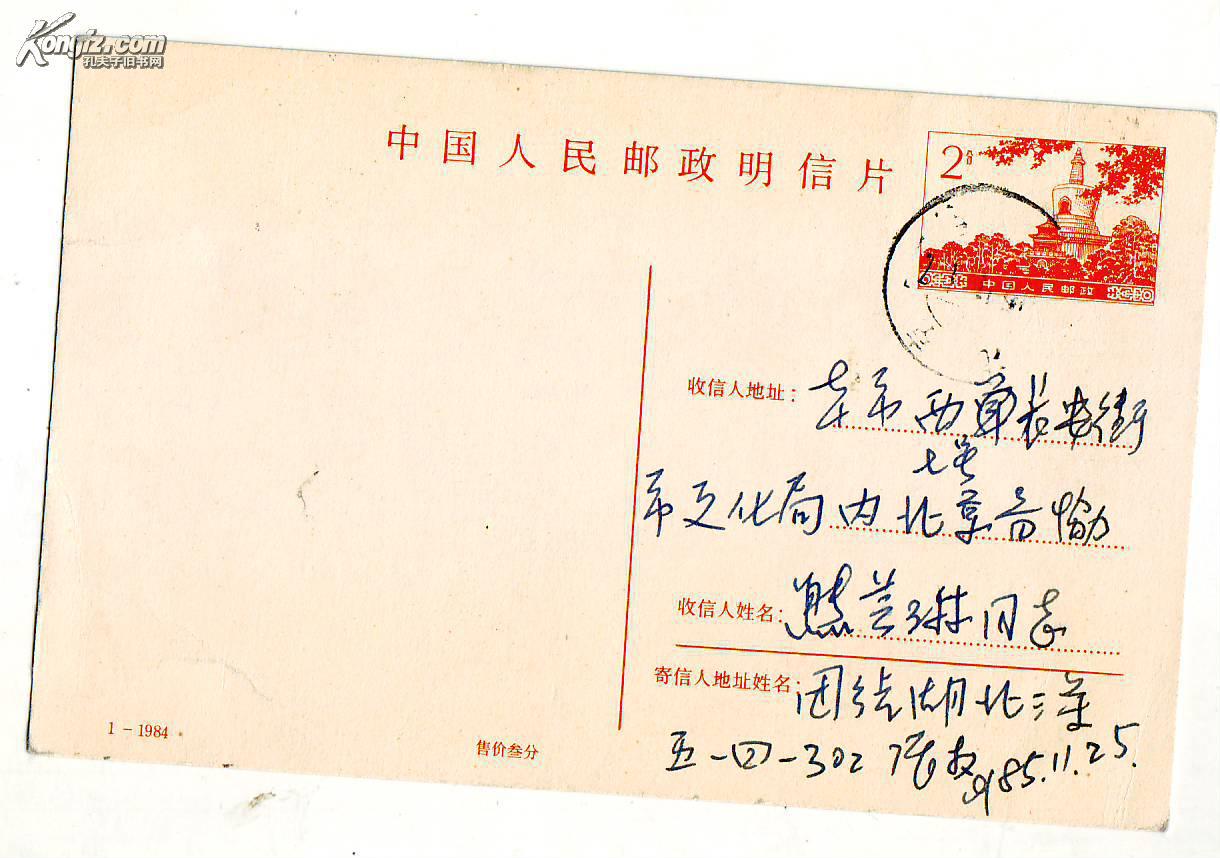 Kongfz.com
孔夫子旧书网
中国人民邮政明信片
2分
中国人民邮政
收信人地址：本市西单长安街
七号
市文化局内北京音协
收信人姓名：熊芸琳同志
寄信人地址姓名：团结湖北三条
五-四-302 张 1985.11.25.
1-1984
售价叁分